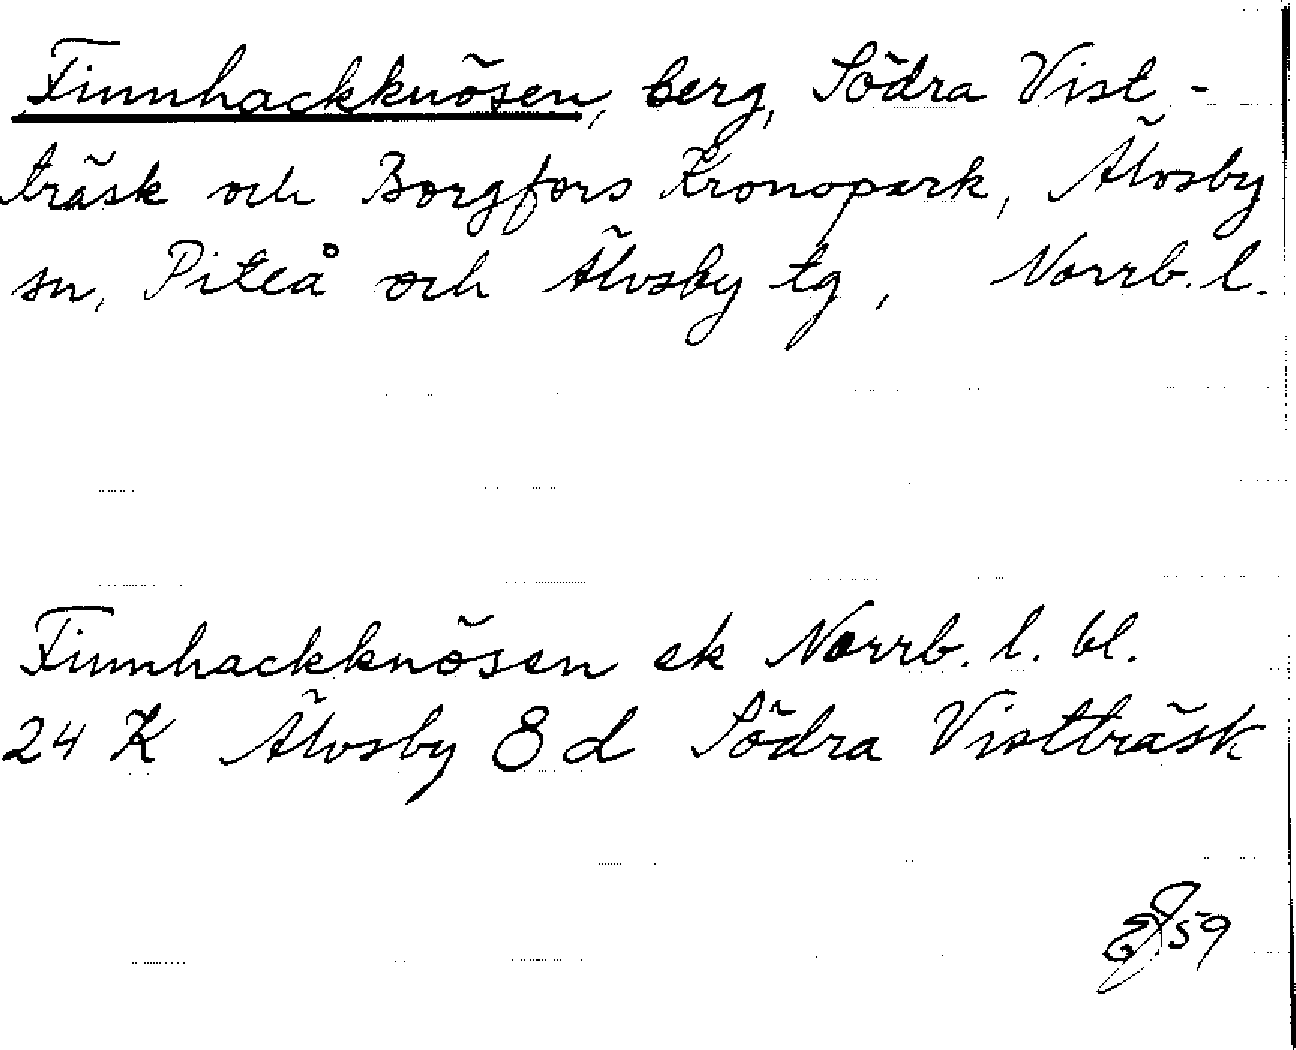 Finnhackknösen, berg, Södra Vist-
träsk och Borgfors Kronopark, Älvsby
sn, Piteå och Älvsby tg, Norrb. l.
Finnhackknösen ek Norrb. l. bl.
24 K Älvsby 8 d Södra Vistträsk
59